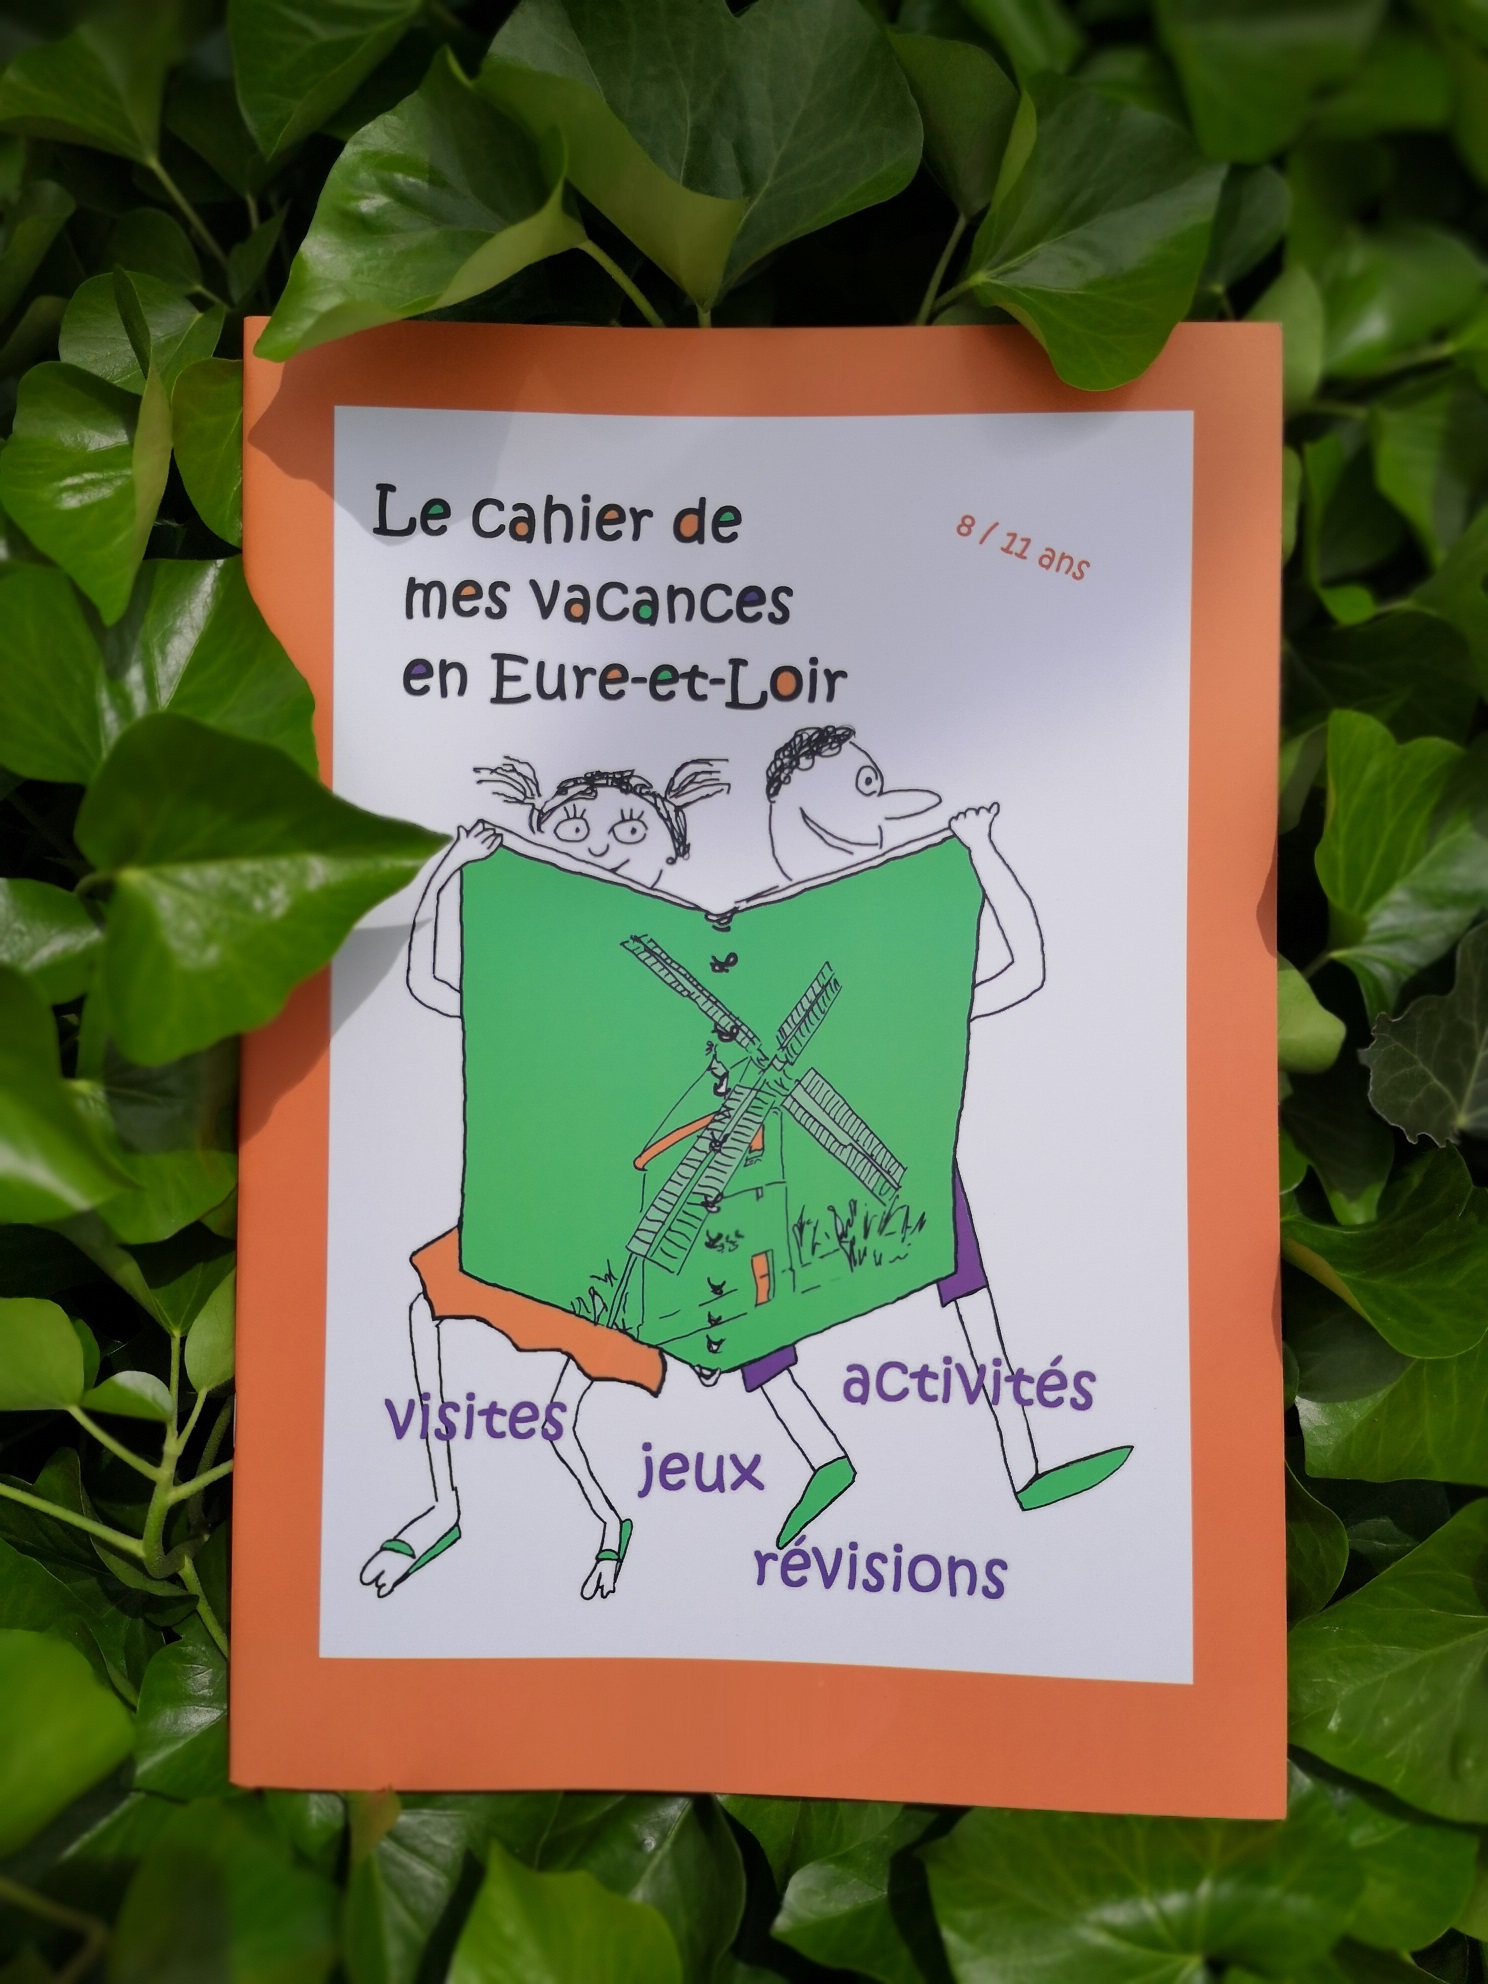 Le cahier de
mes vacances
en Eure-et-Loir
8 / 11 ans
visites
activités
jeux
révisions